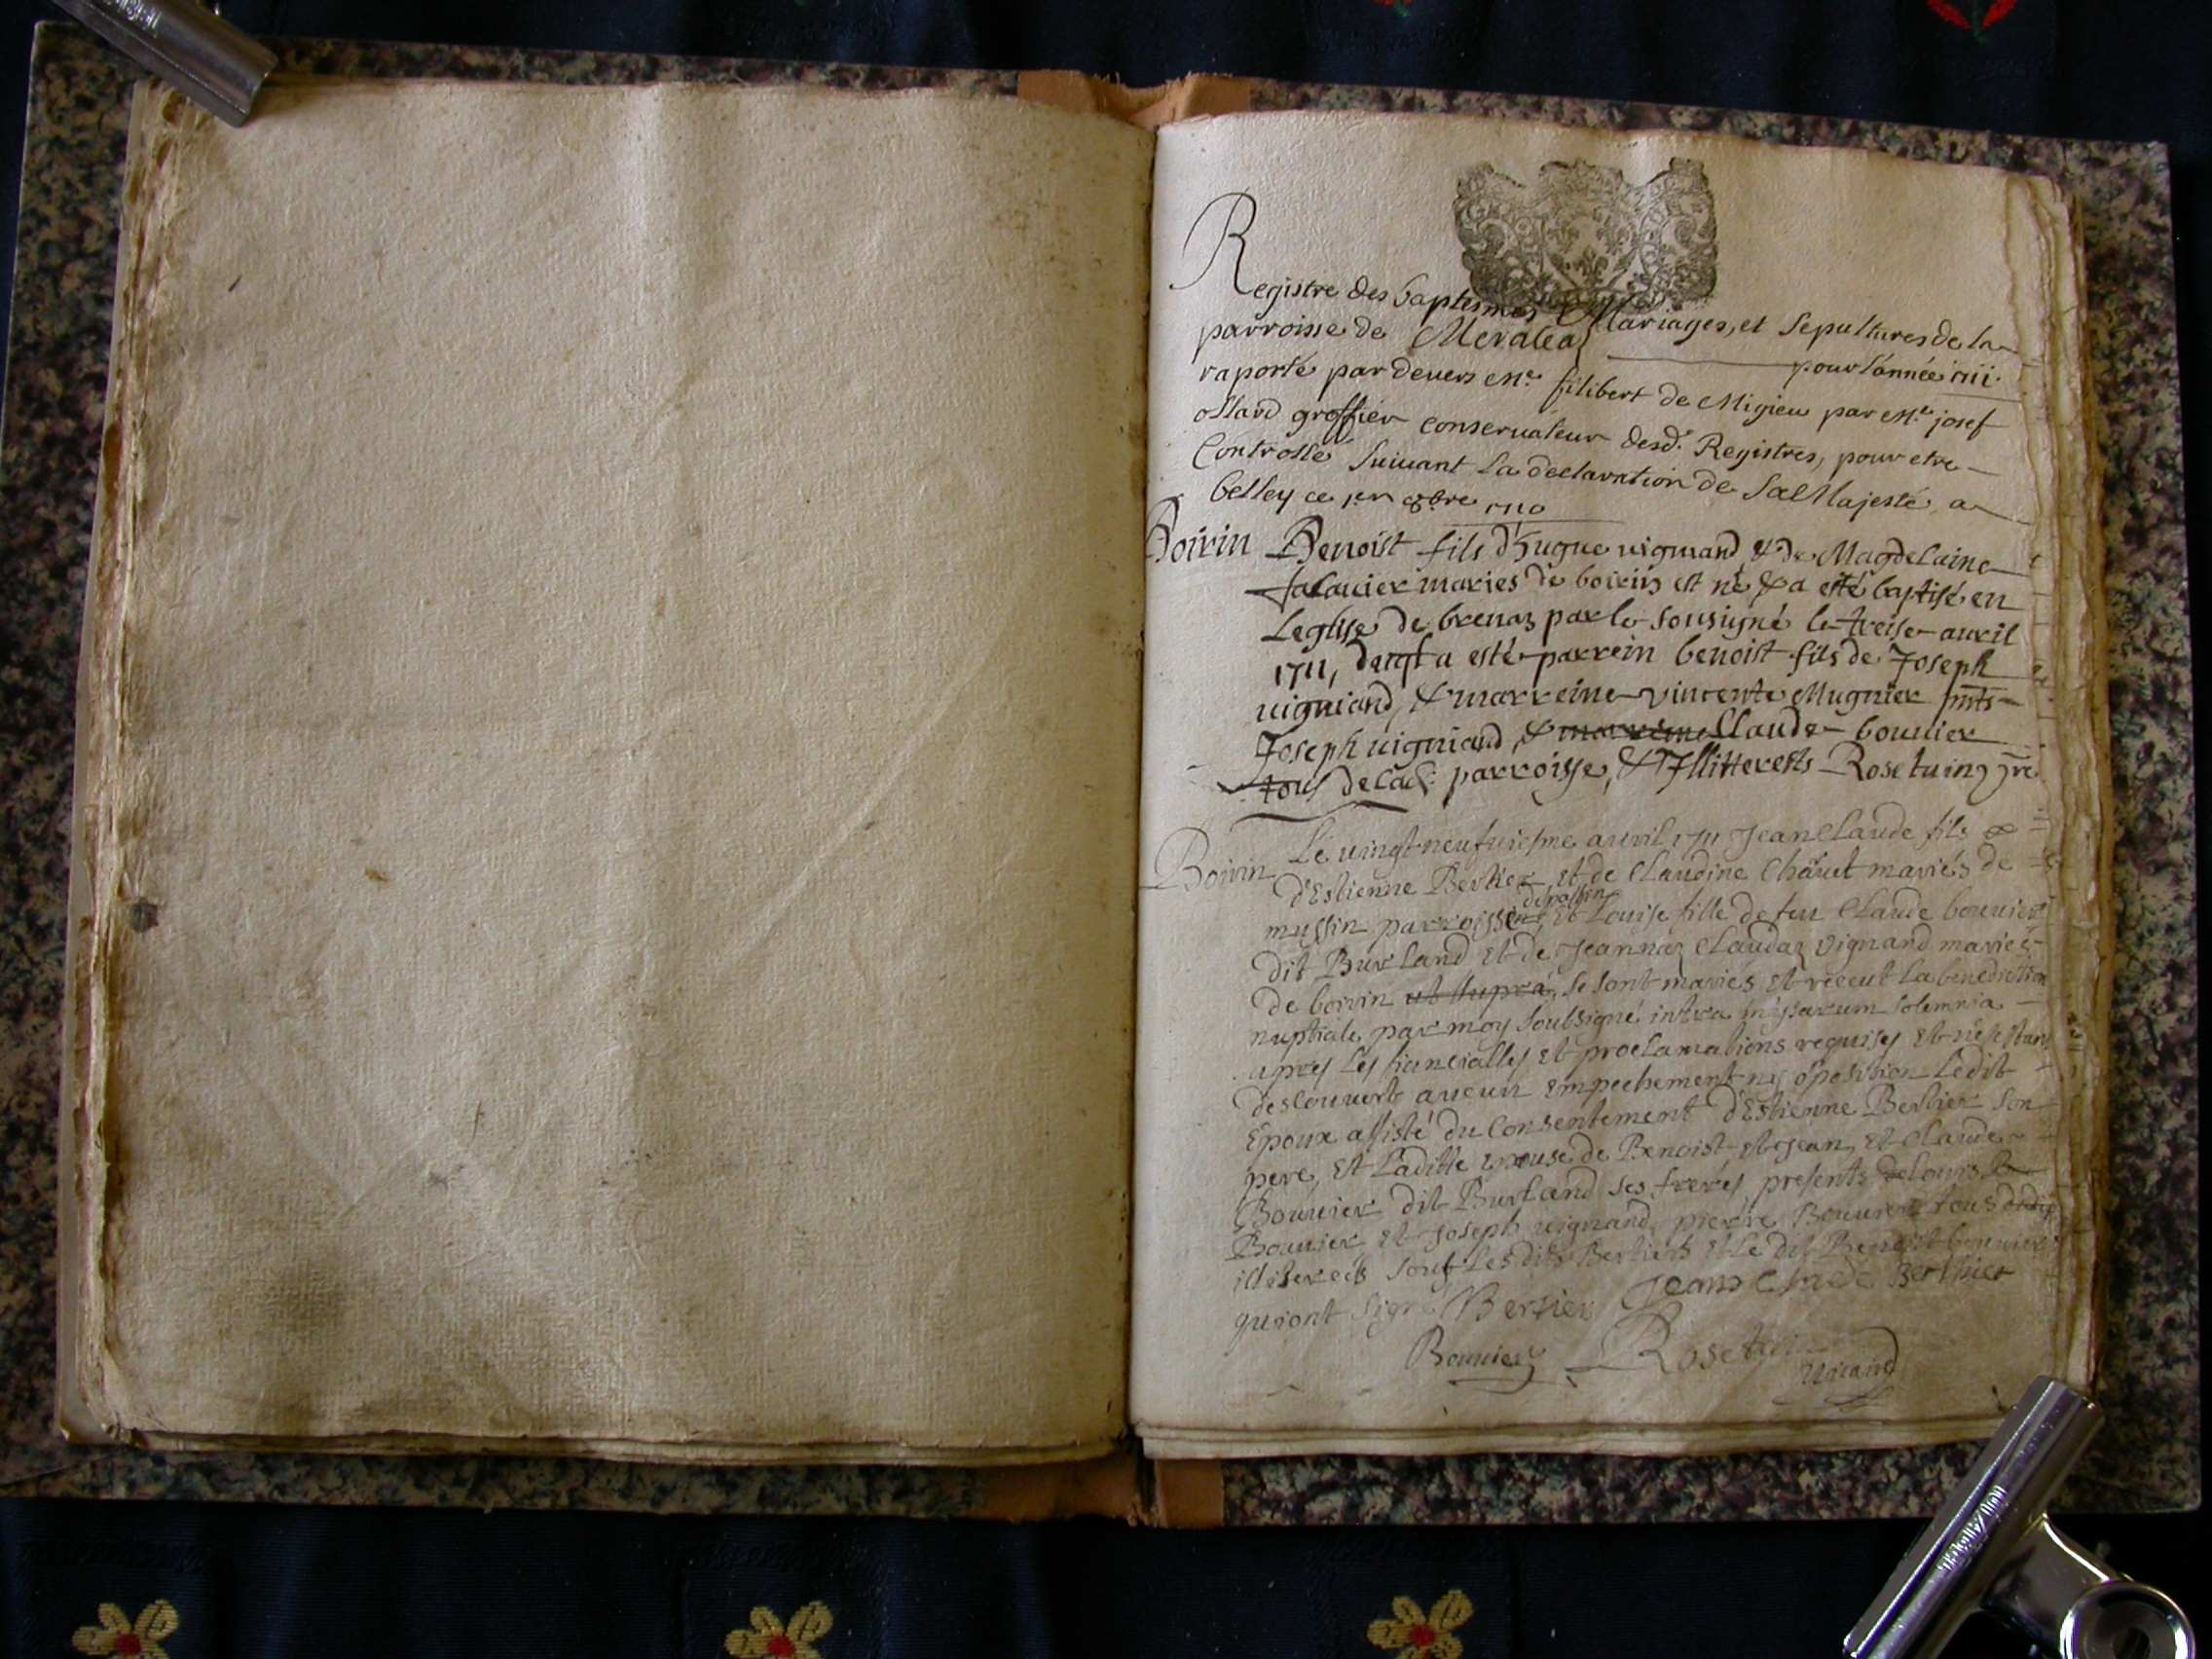 Registre des baptismes Mariages, et Sepultures de la
parroisse de Meraleaz pour l'année 1711
raporté par devers Me. filibert de Migieu par Me. josef
ollard greffier conservateur desd. Registres, pour etre
Controllé suivant la declaration de Sa Majesté, a
belley ce 1er 8bre 1710
Boirin Benoist fils d'hugue vigniand & de Magdelaine
maries de boirin est né & a esté baptisé en
Leglise de brenaz par le sousigné le treise avril
1711, duqt a esté parrein benoist fils de Joseph
vigniand, & marreine vincente Mugnier pnts
Joseph vigniand & marreine Claude bouvier
tous de lad. parroisse, & Illitterests Rosetuing pre
Boirin Le vingt neufviesme avril 1711 Jean Claude fils
d'Estienne Bertier et de Claudine mariés de
mussin parroissens, et Louise fille de feu Claude bouvier
dit Burland et de Jeannaz Claudaz vignand mariés
de boirin ut supra, se sont mariés et receut la benediction
nuptiale, par moy soubsigné intra missarum solemnia
apres les fiancialles et proclamations requises et ne s'estant
descouvert aucun empechement ny oposition ledit
Epoux assisté du consentement d'Estienne Bertier son
pere, et laditte epouse de Benoist et Jean, et Claude
Bouvier dit Burland ses freres presents
Bouvier et Joseph vignand, pierre Bouvier tous
illiterés sauf lesdits Bertiers et le dit Benoist bouvier
qui ont signé Bertier Jean Claude Berthier
Bouvier Rosetuin